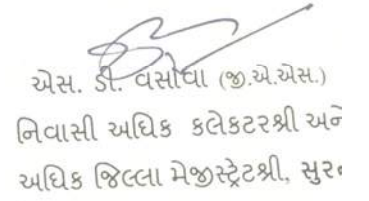 એસ. ડી. વસાવા (જી.એ.એસ.)
નિવાસી અધિક કલેકટરશ્રી અને
અધિક જિલ્લા મેજીસ્ટ્રેટશ્રી,